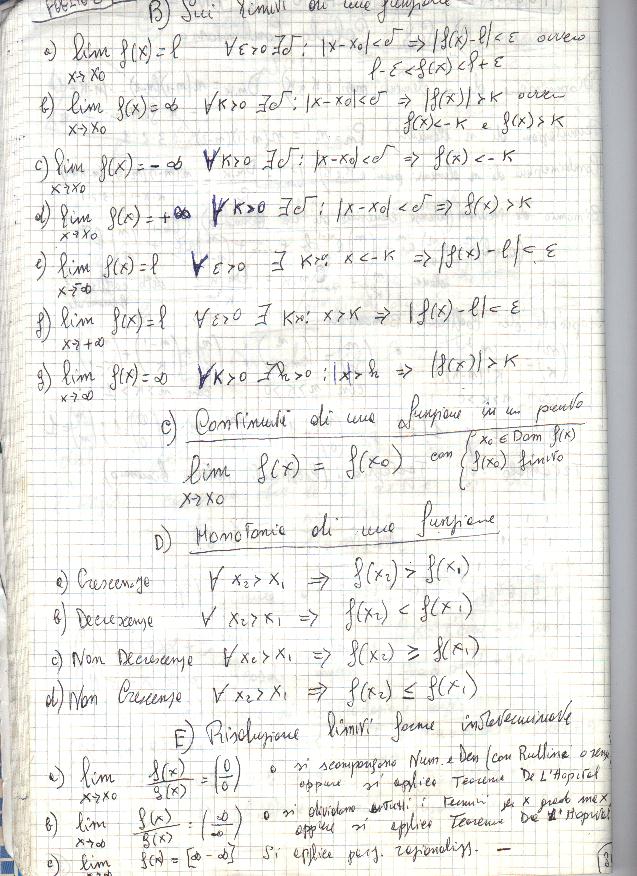 B) Sui limiti di una funzione
a) lim f(x) = l ∀ε>0 ∃δ: |x-x₀|<δ ⇒ |f(x)-l|<ε ovvero
x→x₀ l-ε<f(x)<l+ε
b) lim f(x) = ∞ ∀K>0 ∃δ: |x-x₀|<δ ⇒ |f(x)|>K ovvero
x→x₀ f(x)<-K e f(x)>K
c) lim f(x) = -∞ ∀K>0 ∃δ: |x-x₀|<δ ⇒ f(x)<-K
x→x₀
d) lim f(x) = +∞ ∀K>0 ∃δ: |x-x₀|<δ ⇒ f(x)>K
x→x₀
e) lim f(x) = l ∀ε>0 ∃ K>0: x<-K ⇒ |f(x)-l|<ε
x→-∞
f) lim f(x) = l ∀ε>0 ∃ K>0: x>K ⇒ |f(x)-l|<ε
x→+∞
g) lim f(x) = ∞ ∀K>0 ∃h>0: |x|>h ⇒ |f(x)|>K
x→∞
C) Continuità di una funzione in un punto
lim f(x) = f(x₀) con { x₀ ∈ Dom f(x)
x→x₀ f(x₀) finito
D) Monotonia di una funzione
a) Crescenze ∀ x₂>x₁ ⇒ f(x₂) > f(x₁)
b) Decrescenze ∀ x₂>x₁ ⇒ f(x₂) < f(x₁)
c) Non Decrescenze ∀ x₂>x₁ ⇒ f(x₂) ≥ f(x₁)
d) Non Crescenze ∀ x₂>x₁ ⇒ f(x₂) ≤ f(x₁)
E) Risoluzione limiti forme indeterminate
a) lim f(x)/g(x) = (0/0) o si scompongono Num. e Den (con Ruffini o
x→x₀ oppure si applica Teorema De L'Hopital
b) lim f(x)/g(x) = (∞/∞) o si dividono tutti i termini per x grado max
x→∞ oppure si applica Teorema De L'Hopital
c) lim f(x) = [∞-∞] Si applica razionalizz. —
x→∞